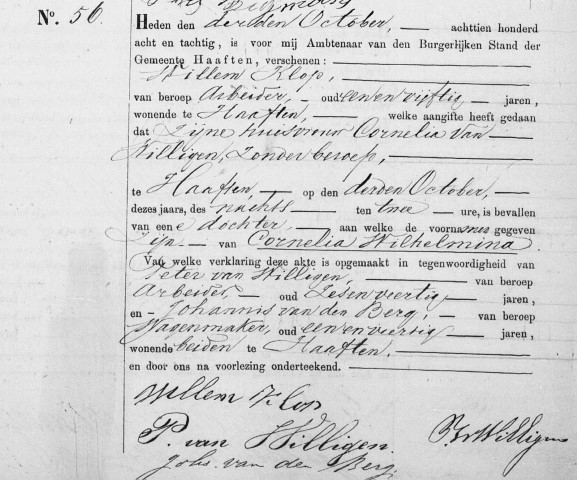 No. 56.
Heden den derden October, achttien honderd
acht en tachtig, is voor mij Ambtenaar van den Burgerlijken Stand der
Gemeente Haaften, verschenen:
Willem Klop,
van beroep Arbeider, oud eenenvijftig jaren,
wonende te Haaften, welke aangifte heeft gedaan
dat Zijne huisvrouw Cornelia van
Willigen, zonder beroep,
te Haaften, op den derden October,
dezes jaars, des nachts ten twee ure, is bevallen
van een e dochter, aan welke de voornamen gegeven
Zijn van Cornelia Wilhelmina.
Van welke verklaring deze akte is opgemaakt in tegenwoordigheid van
Peter van Willigen, van beroep
Arbeider, oud Zesenveertig jaren,
en Johannis van den Berg, van beroep
Wagenmaker, oud eenenveertig jaren,
wonende beiden te Haaften.
en door ons na voorlezing onderteekend.
Willem Klop
P. van Willigen.
Johs. van den Berg.